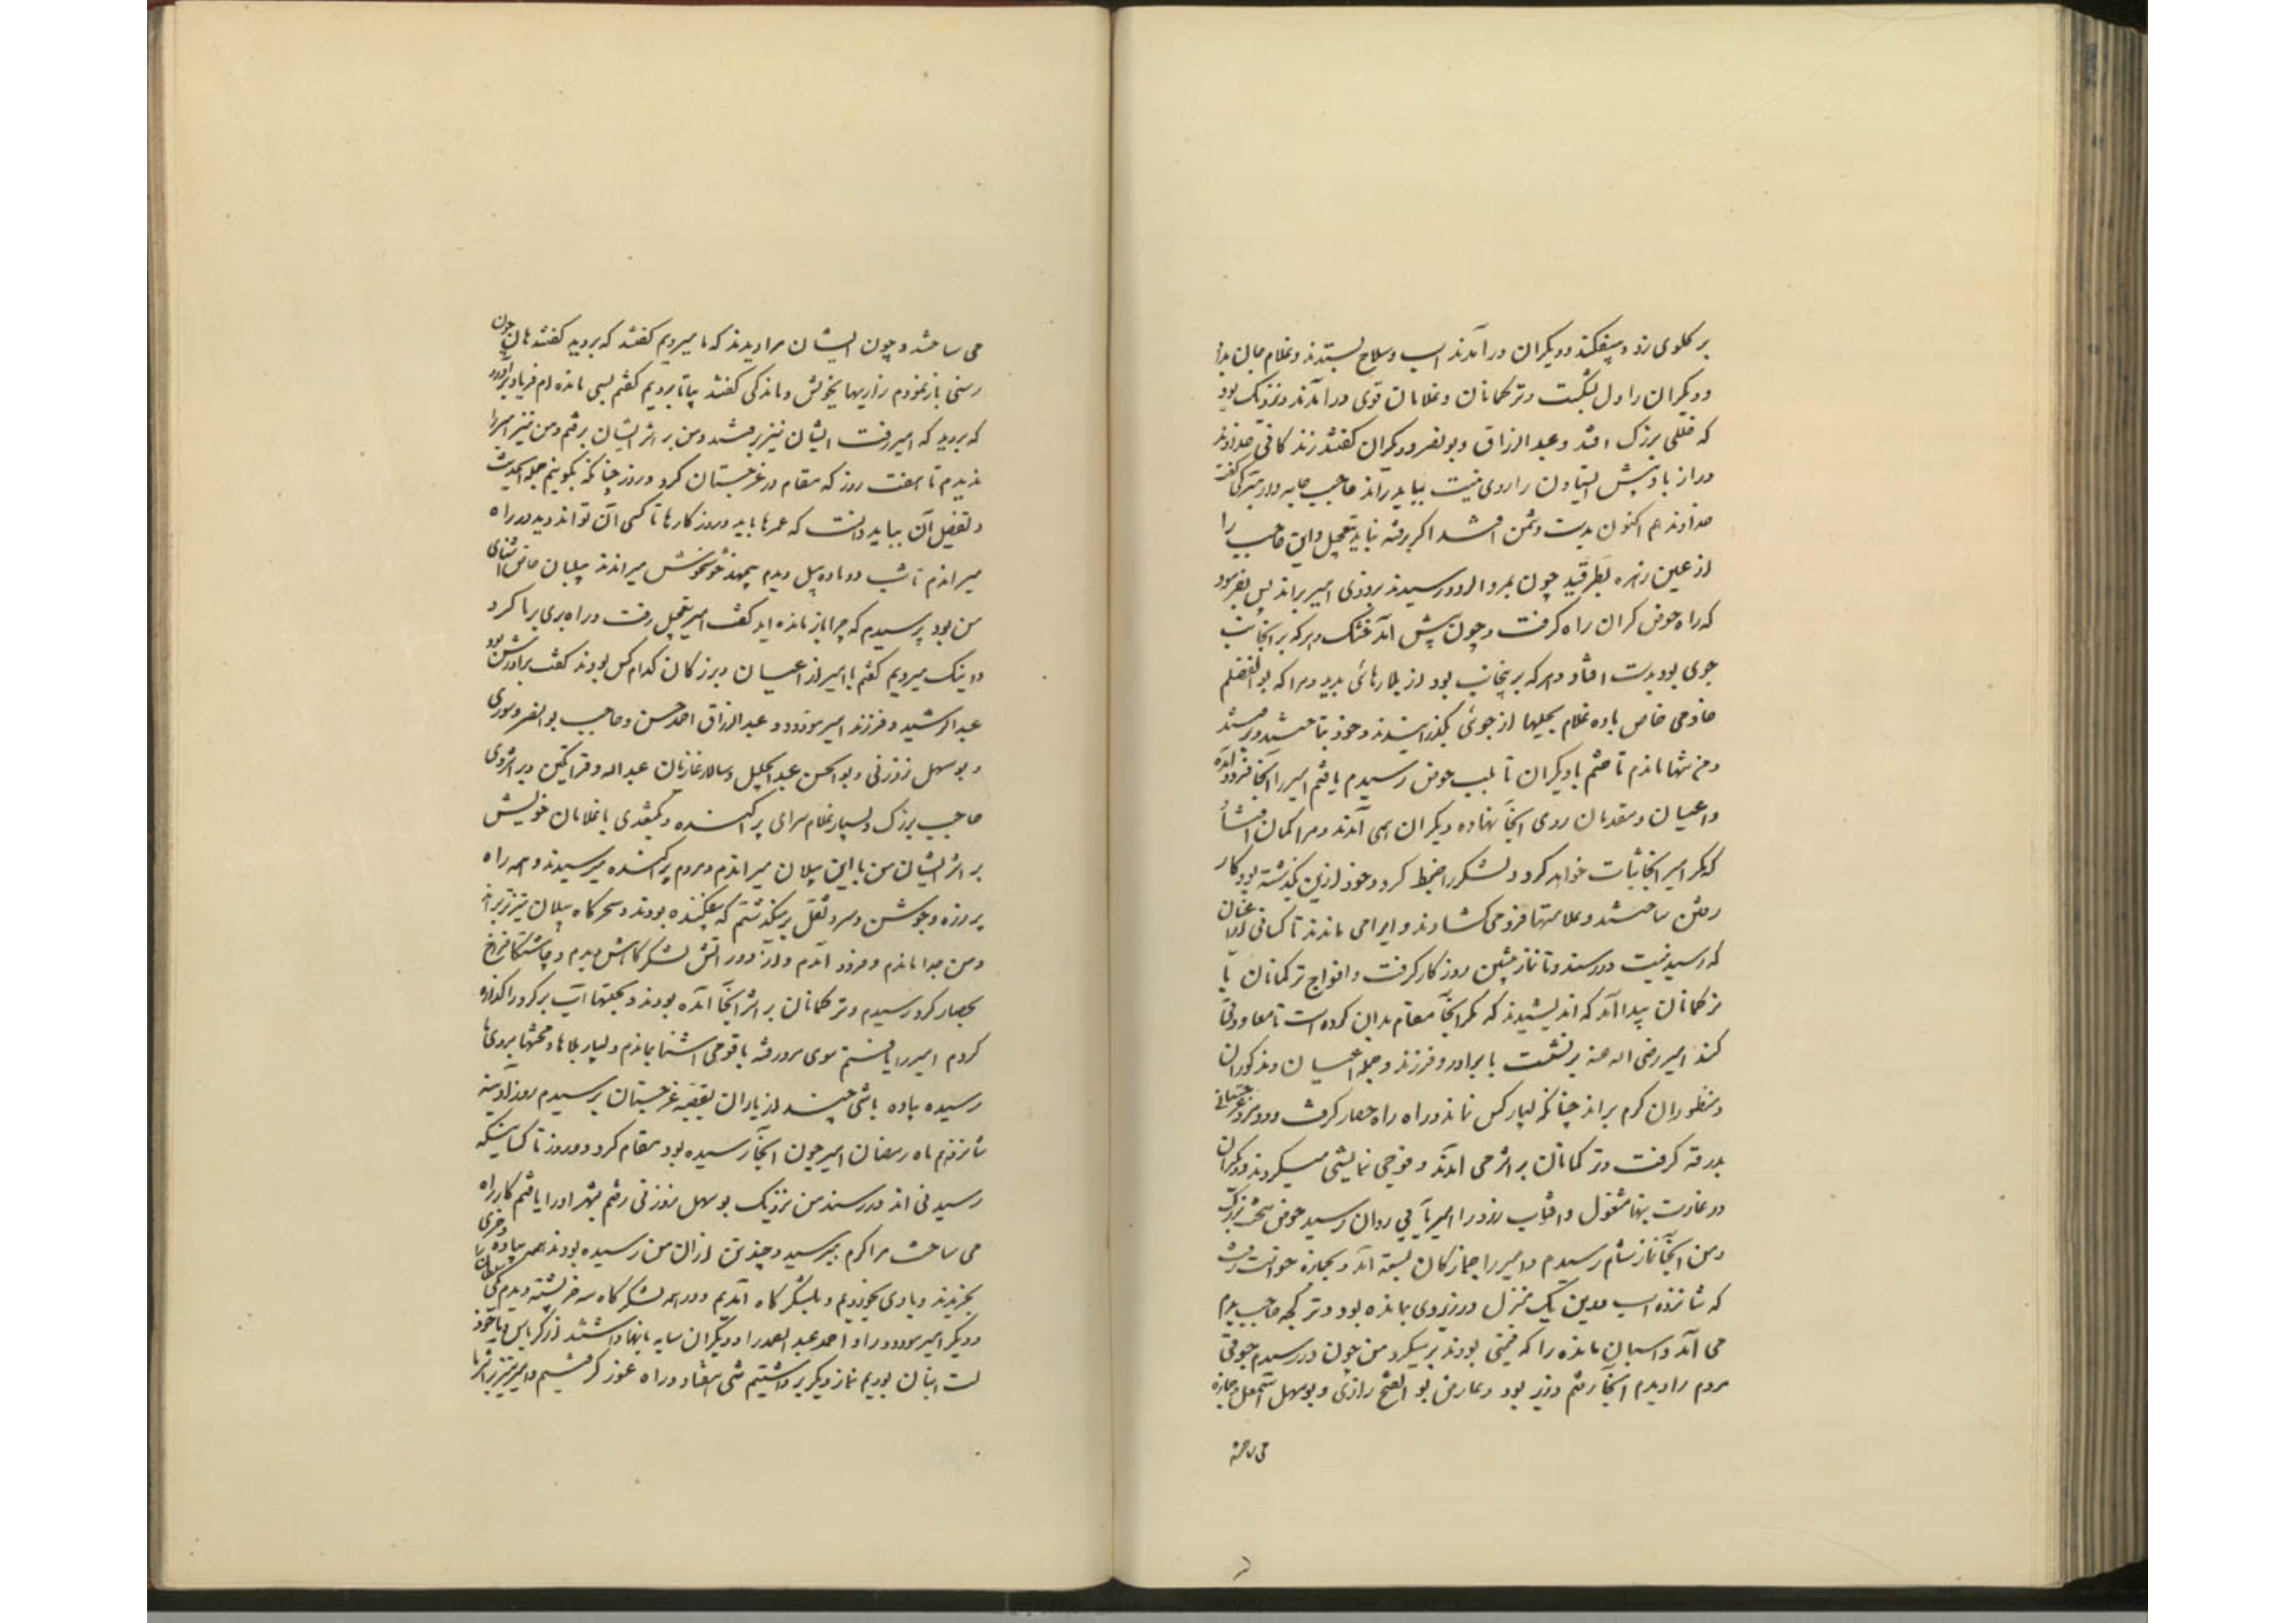 بر گلوی زد و بیفکند و دیگران درآمدند اسب و سلاح بستدند و غلام جان بداد
و دیگران را دل بشکست و ترکمانان و غلامان قوی درآمدند و نزدیک بود
که خللی بزرگ افتد و عبدالرزاق و بونصر و دیگران گفتند زندگانی خداوند
دراز باد پیش ایستادن را روی نیست بباید راند حاجب جامه دار بترکی گفت
خداوند هم اکنون بدست دشمن افتد اگر رفته نیاید بتعجیل و این حاجب را
از عین زهره بطرقید چون بمروالرود رسیدند بروزی امیر براند پس بفرمود
که راه حوض گران راه گرفت و چون پیش آمد خشک و هر که بر انجانب
جوی بود بدست افتاد و هر که برینجانب بود از بلا رهائی بدید و مرا که بوالفضلم
خادمی خاص با ده غلام بحیلها از جوئی بگذرانیدند و خود بتاختند و برفتند
و من تنها ماندم تاختم با دیگران تا بلب حوض رسیدم یافتم امیر را آنجا فرود آمده
و اعیان و مقدمان روی آنجا نهاده و دیگران همی آمدند و مرا گمان افتاد
که مگر امیر آنجا ثبات خواهد کرد و لشکر را ضبط کرد و خود ازین بگذشته بود و کار
رفتن ساختند و علامتها فرو می کشادند و ایرا می ماندند تا کسانی از اعیان
که رسید نیست در رسند و تا نماز پیشین روزگار گرفت و افواج ترکمانان با
ترکمانان پیدا آمد که اندیشیدند که مگر آنجا مقام بدان کرده است تا معاودتی
کند امیر رضی اله عنه برنشست با برادر و فرزند و جمله اعیان و مذکوران
و منظوران گرم براند چنانکه بسیار کس نماند و راه راه حصار گرفت و دو مرد غرجستانی
بدرقه گرفت و ترکمانان بر اثر می آمدند و فوجی نمایشی میکردند و دیگران
در غارت بنها مشغول و آفتاب زرد را امیر بآبی روان رسید حوض سخت بزرگ
و من آنجا نماز شام رسیدم و امیر را جمازگان بسته آمد و بجمازه خواست رفت
که شانزده اسب درین یک منزل در زیر وی بمانده بود و ترکجه حاجب بدم
می آمد و اسبان مانده را که قیمتی بودند بر میکرد من چون در رسیدم جوقی
مردم را دیدم آنجا رفتم وزیر بود و عارض بوالفتح رازی و بوسهل اسمعیل جمازه
می ساختند
می ساختند و چون ایشان مرا دیدند که ما میرویم گفتند که بروید گفتند هان چون
رستی باز نمودم زاریها بخویش و ماندگی گفتند بیا تا برویم گفتم بسی مانده ام فریاد برآورد
که بروید که امیر رفت ایشان نیز برفتند و من بر اثر ایشان برفتم و من نیز امیر را
ندیدم تا هفت روز که مقام در غرجستان کرد و روز چنانکه بگویم جمله این حدیث
و تفصیل آن بباید دانست که عمرها باید و روزگارها تا کسی آن تواند دید و در راه
میراندم تا شب دو ماده پیل دیدم بیمهد خوش خوش میراندند پیلبان خاص آشنای
من بود پرسیدم که چرا باز مانده اید گفت امیر بتعجیل رفت و راه بری بر ما کرد
و اینک میرویم گفتم با امیر از اعیان و بزرگان کدام کس بودند گفت برادرش بود
عبدالرشید و فرزند امیر مودود و عبدالرزاق احمد حسن و حاجب بوالنصر و سوری
و بوسهل زوزنی و بوالحسن عبدالجلیل و سالار غازیان عبداله و قراتکین و بر اثر وی
حاجب بزرگ و بسیار غلام سرای پراکنده و بکتغدی با غلامان خویش
بر اثر ایشان من با این پیلان میراندم و مردم پراکنده میرسیدند و همه راه
بر زره و جوشن و سپر و ثقل بر میگذشتم که بیفکنده بودند و سحرگاه پیلان تیزتر براند
و من جدا ماندم و فرود آمدم و از دور آتش لشکرگاه دیدم و چاشتگاه فراخ
بحصار کرد رسیدم و ترکمانان بر اثر آنجا آمده بودند و بحیلتها آب برکرد را گذاره
کردم امیر را یافتم سوی مرو رفته با قومی آشنا بماندم و بسیار بلاها و محنتها بروی ما
رسیده پیاده با تنی چند از یاران بقصبه غرجستان رسیدم روز آدینه
شانزدهم ماه رمضان امیر چون آنجا رسیده بود مقام کرد دو روز تا کسانیکه
رسیدنی اند در رسند من نزدیک بوسهل زوزنی رفتم بشهر او را یافتم کار راه
می ساخت مرا گرم بپرسید و چند تن از آن من رسیده بودند همه پیاده و چیزی
بخریدند و با وی بخوردیم و بلشکرگاه آمدیم و در همه لشکرگاه سه خرپشته دیدم یکی سلطان را
و دیگر امیر مودود را و احمد عبدالصمد را و دیگران سایه بانها داشتند از کرباس و ما خود
لت انبان بودیم نماز دیگر برداشتیم تنی هفتاد و راه غور گرفتیم و امیر نیز بر اثر ما